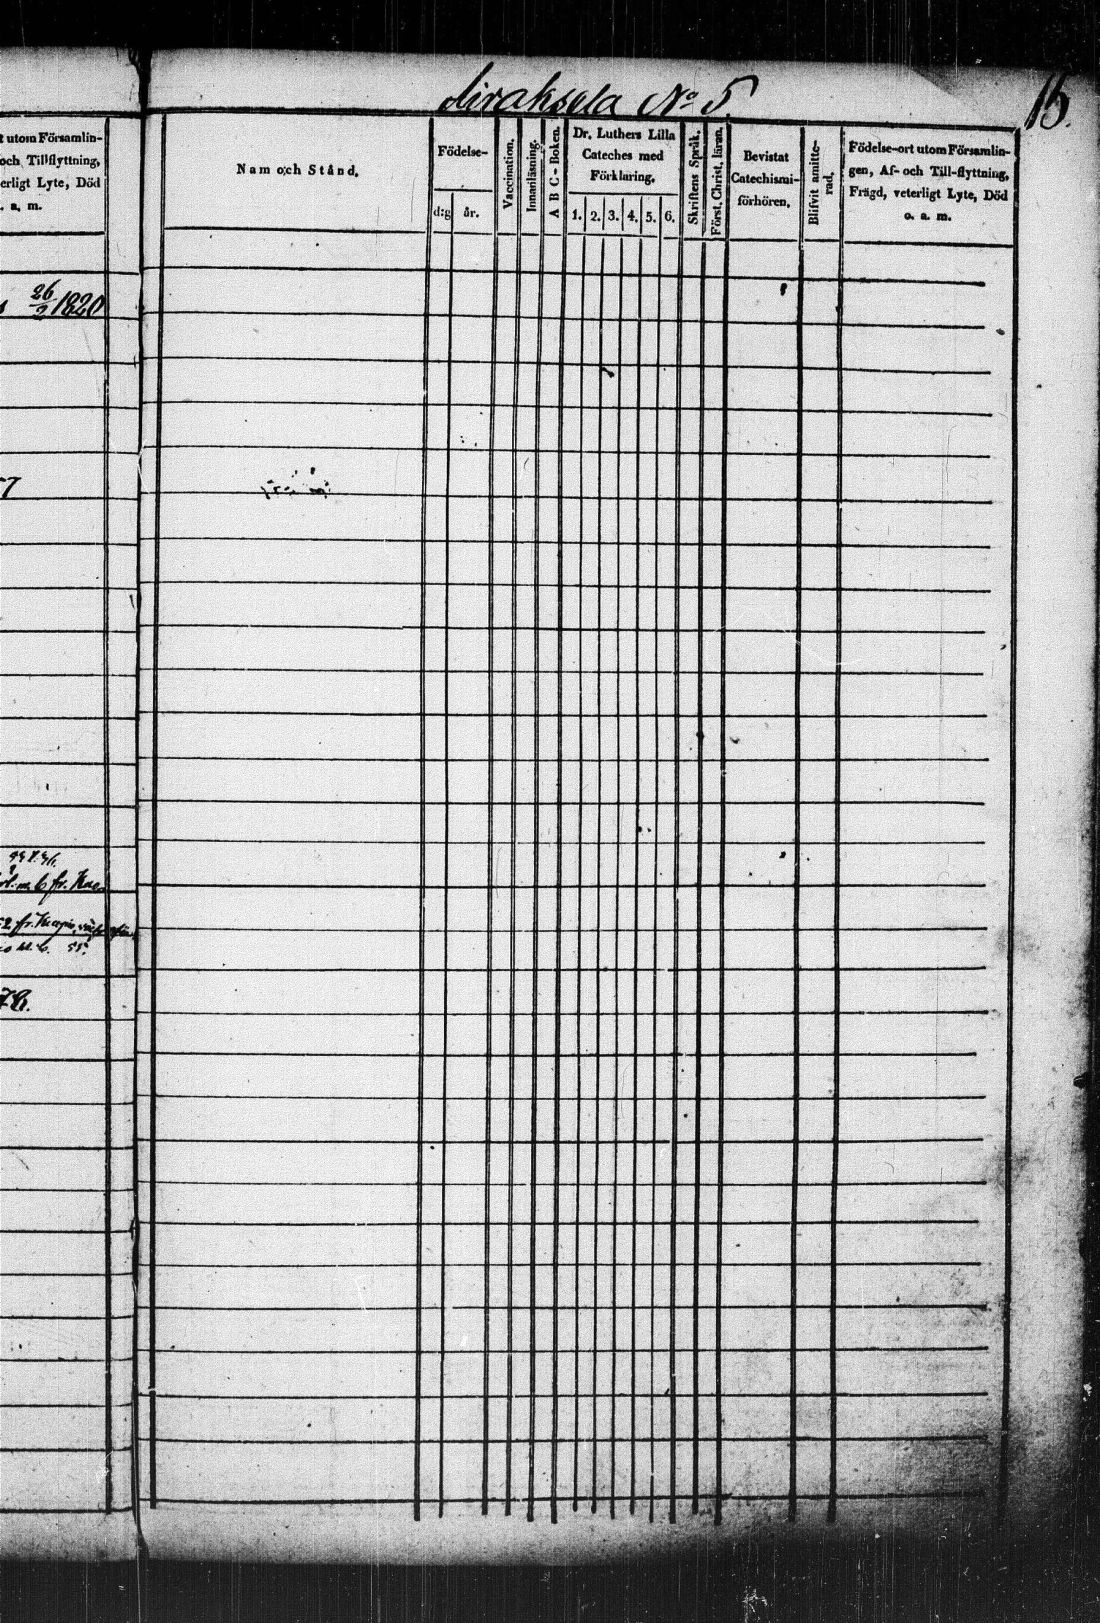 Liraksela No 5
15.
t utom Församlin-
och Tillflyttning,
erligt Lyte, Död
. a. m.
26/2 1820
57
fr.
52 fr.
55.
78.
Nam och Stånd.
Födelse-
d:g år.
Vaccination.
Innanläsning.
A B C - Boken.
Dr. Luthers Lilla
Cateches med
Förklaring.
1. 2. 3. 4. 5. 6.
Skriftens Språk.
Först. Christ. läran.
Bevistat
Catechismi-
förhören.
Blifvit amitte-
rad.
Födelse-ort utom Församlin-
gen, Af- och Till-flyttning,
Frägd, veterligt Lyte, Död
o. a. m.